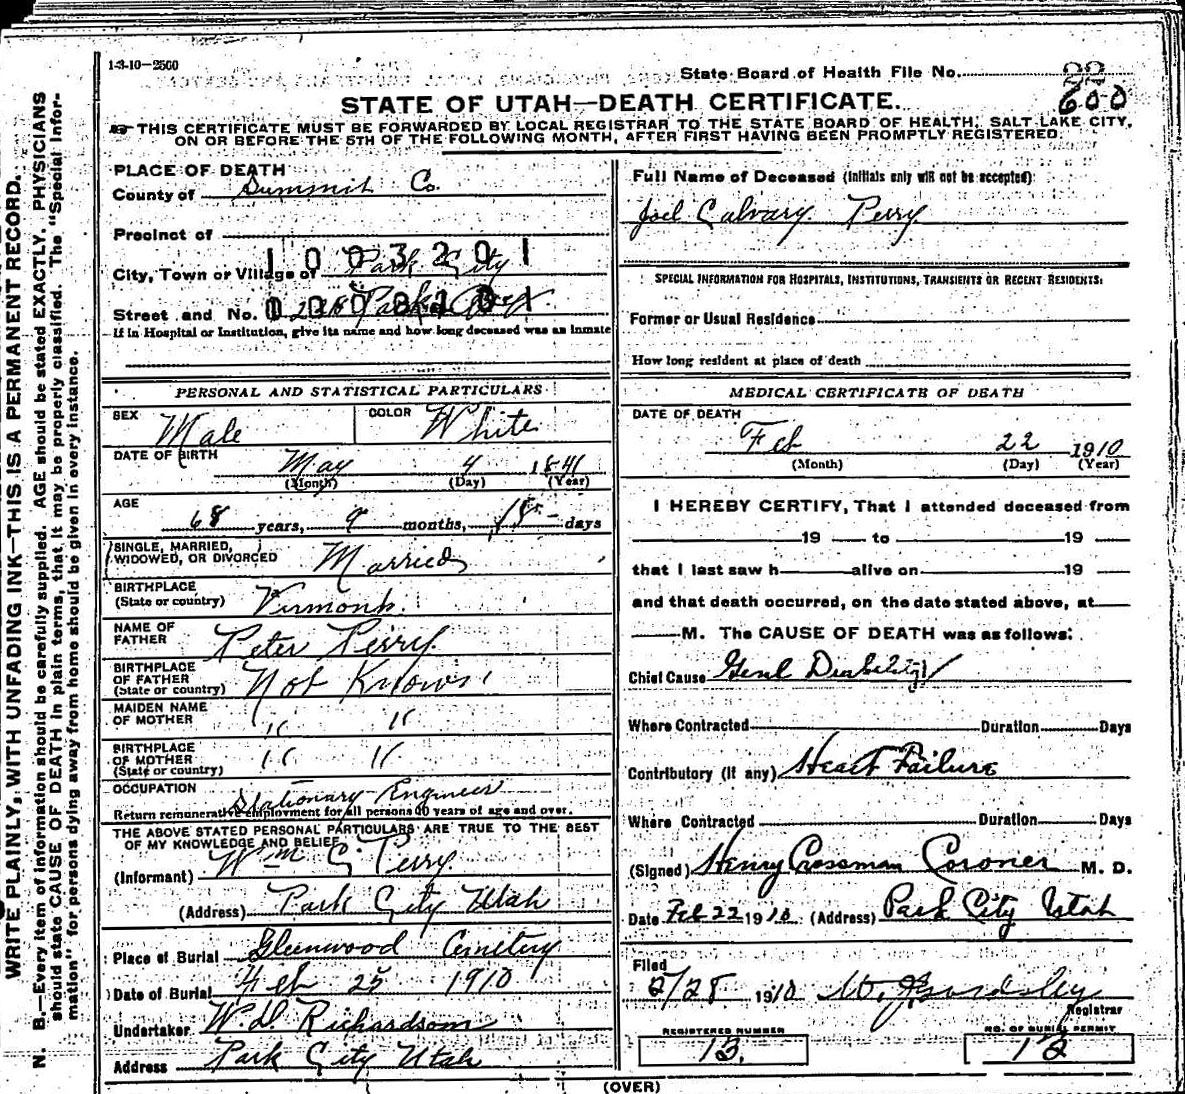 1-3-10—2500
State Board of Health File No. 22
600
STATE OF UTAH—DEATH CERTIFICATE.
THIS CERTIFICATE MUST BE FORWARDED BY LOCAL REGISTRAR TO THE STATE BOARD OF HEALTH, SALT LAKE CITY,
ON OR BEFORE THE 5TH OF THE FOLLOWING MONTH, AFTER FIRST HAVING BEEN PROMPTLY REGISTERED.
WRITE PLAINLY, WITH UNFADING INK—THIS IS A PERMANENT RECORD.
N. B.—Every item of information should be carefully supplied. AGE should be stated EXACTLY. PHYSICIANS
should state CAUSE OF DEATH in plain terms, that it may be properly classified. The "Special Infor-
mation" for persons dying away from home should be given in every instance.
PLACE OF DEATH
County of Summit Co.
Precinct of
1003201
City, Town or Village of Park City
Street and No. Park
If in Hospital or Institution, give its name and how long deceased was an inmate
PERSONAL AND STATISTICAL PARTICULARS
SEX Male COLOR White
DATE OF BIRTH May 4 1841
(Month) (Day) (Year)
AGE
68 years, 9 months, 18 days
SINGLE, MARRIED,
WIDOWED, OR DIVORCED Married
BIRTHPLACE
(State or country) Virmont
NAME OF
FATHER Peter Perry
BIRTHPLACE
OF FATHER
(State or country) Not Known
MAIDEN NAME
OF MOTHER " "
BIRTHPLACE
OF MOTHER
(State or country) " "
OCCUPATION Stationary Engineer
Return remunerative employment for all persons 10 years of age and over.
THE ABOVE STATED PERSONAL PARTICULARS ARE TRUE TO THE BEST
OF MY KNOWLEDGE AND BELIEF
(Informant) Wm C Perry
(Address) Park City Utah
Place of Burial Glennwood Cemetery
Date of Burial Feb 25 1910
Undertaker W.D. Richardson
Address Park City Utah
Full Name of Deceased (Initials only will not be accepted)
Joel Calvary Perry
SPECIAL INFORMATION FOR HOSPITALS, INSTITUTIONS, TRANSIENTS OR RECENT RESIDENTS:
Former or Usual Residence
How long resident at place of death
MEDICAL CERTIFICATE OF DEATH
DATE OF DEATH
Feb 22 1910
(Month) (Day) (Year)
I HEREBY CERTIFY, That I attended deceased from
19 to 19
that I last saw h alive on 19
and that death occurred, on the date stated above, at
M. The CAUSE OF DEATH was as follows:
Chief Cause Genl
Where Contracted Duration Days
Contributory (if any) Heart Failure
Where Contracted Duration Days
(Signed) Henry Crossman Coroner M. D.
Date Feb 22 1910 (Address) Park City Utah
Filed
2/28 1910
Registrar
REGISTERED NUMBER
13
NO. OF BURIAL PERMIT
12
(OVER)